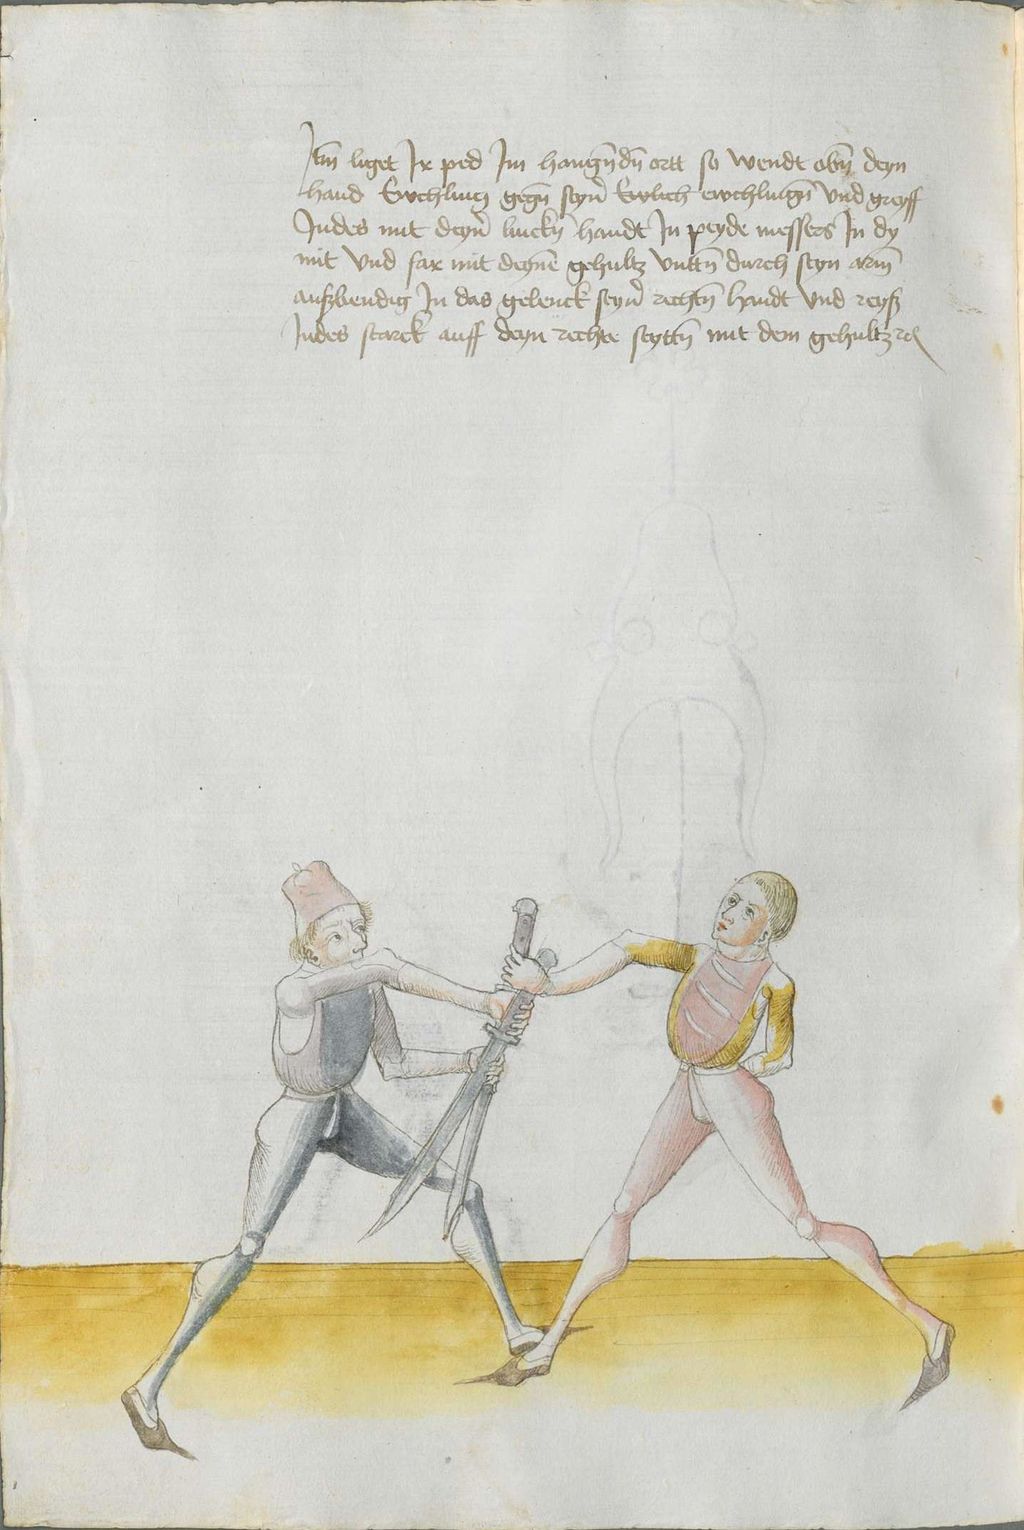 Itm̄ liget Ir ped Im hangn̄dn̄ ortt so wendt obn̄ deyn
hand Ewchling gegn̄ seyn̄ ewchlingn̄ vnd greyff
Indes mit deyn̄ linckn̄ handt In peyde messers In dy
mit vnd far mit deynē gehultz vnttn̄ durch seyn arm̄
auszbendig In das gelenck seyn̄ rechtn̄ handt vnd reysz
Indes starck auff deyn rechte seyttn̄ mit dem gehultz rc